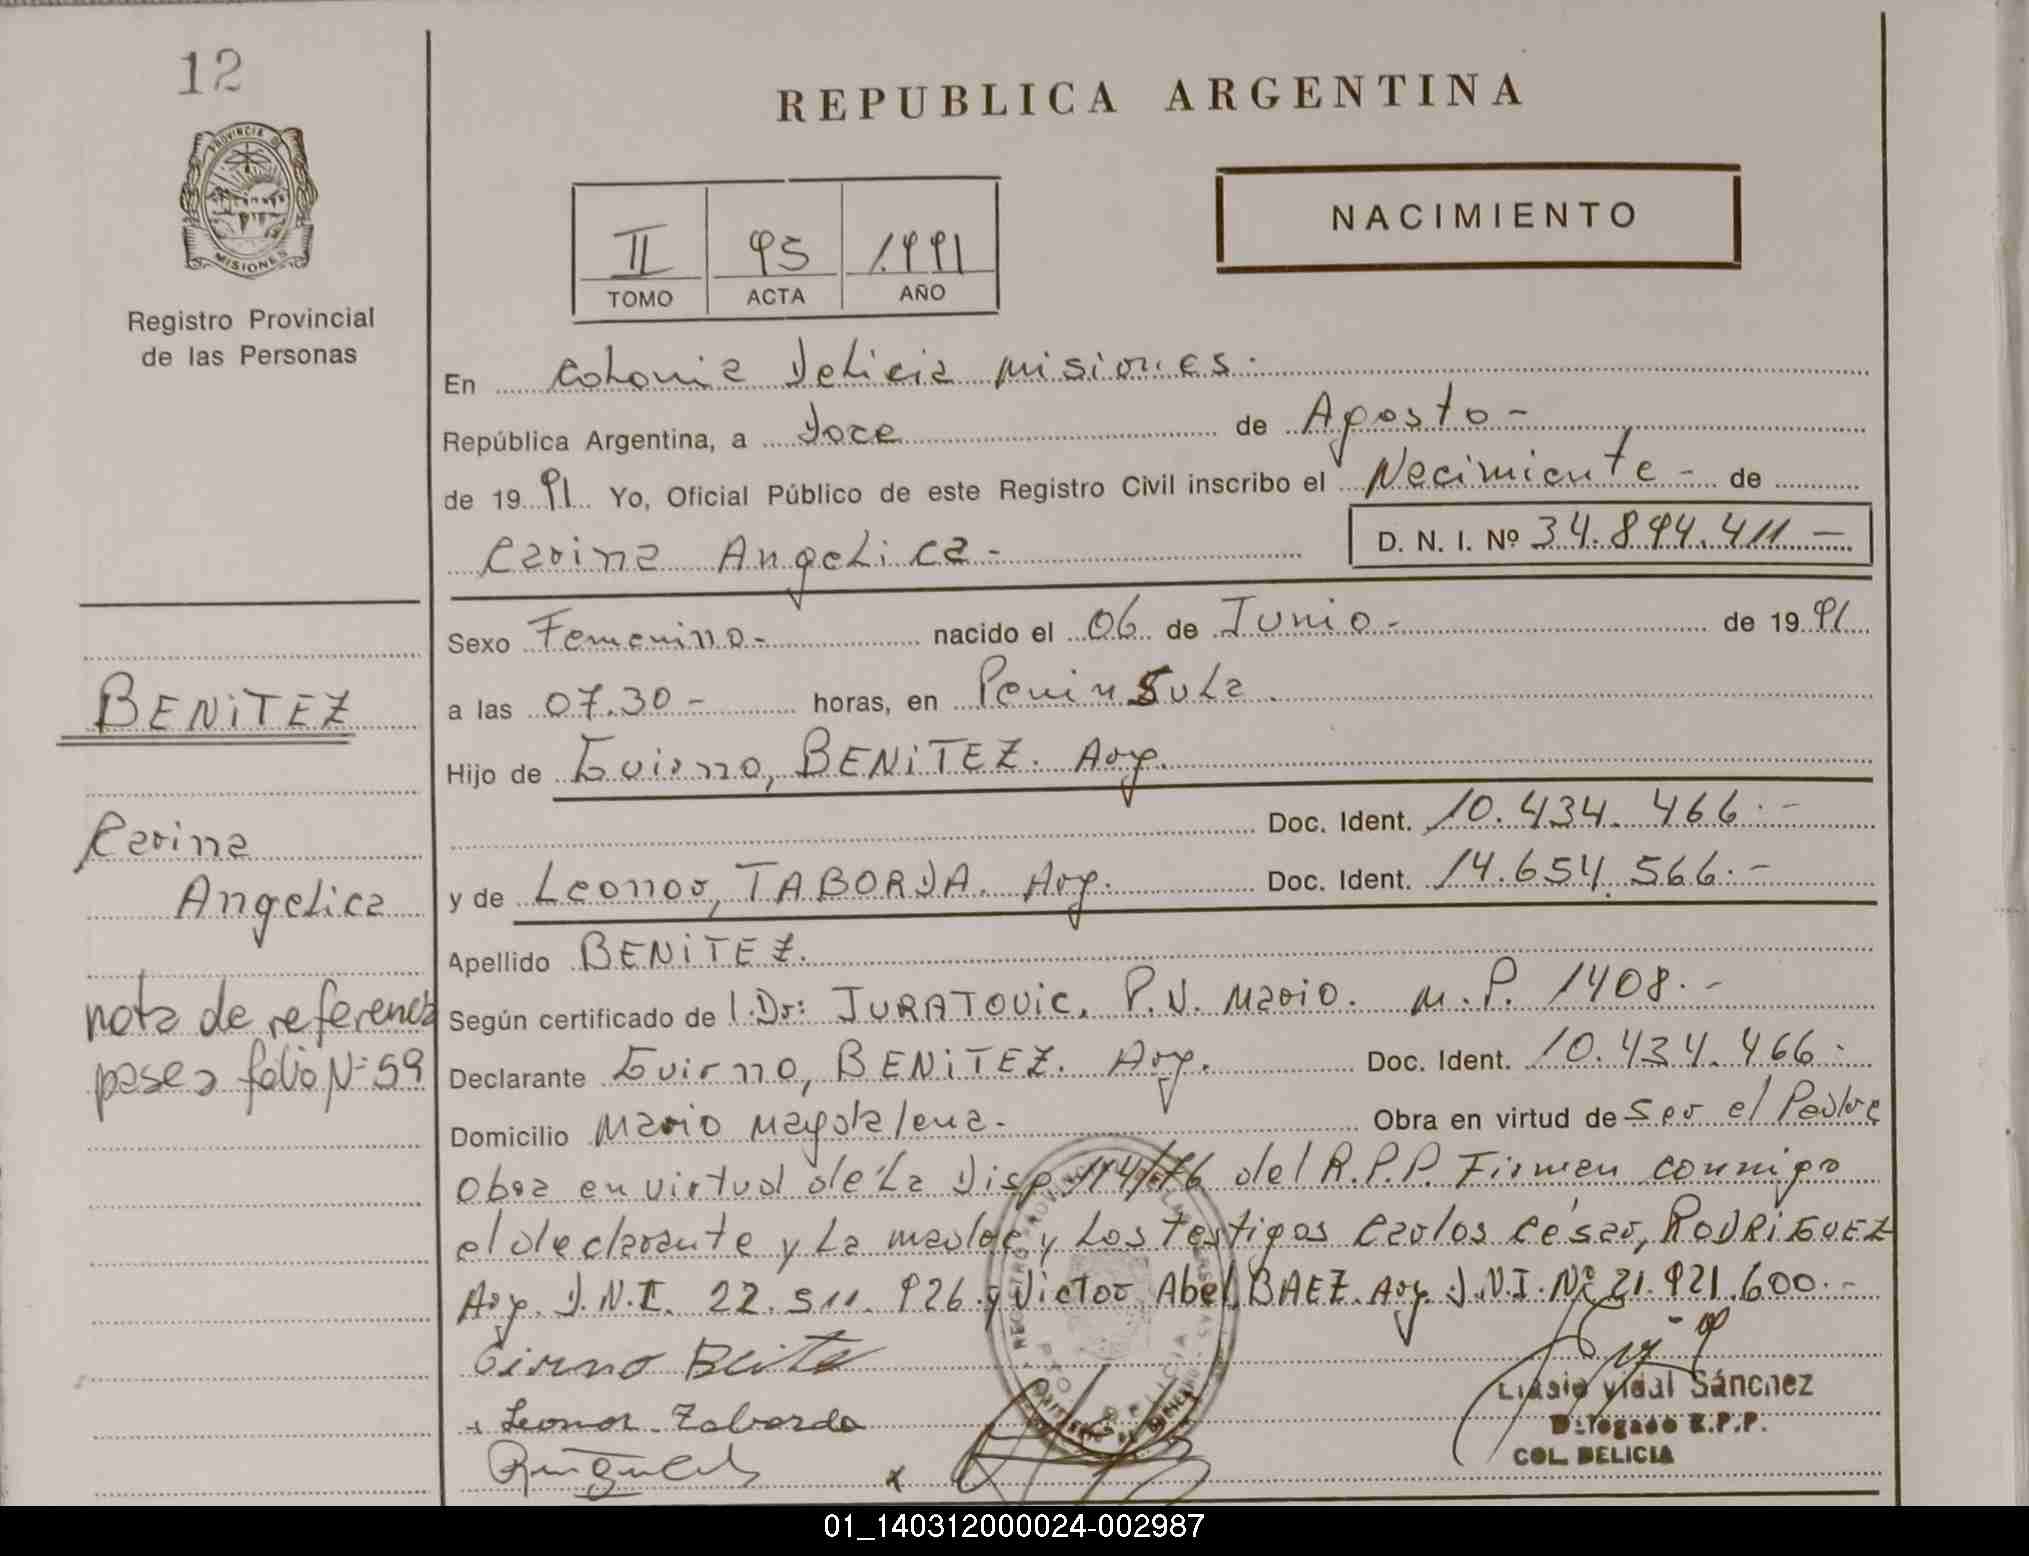 12
REPUBLICA ARGENTINA
PROVINCIA DE
MISIONES
Registro Provincial
de las Personas
NACIMIENTO
II 95 1.991
TOMO ACTA AÑO
En Colonia Delicia Misiones.
República Argentina, a Doce de Agosto -
de 19 91 Yo, Oficial Público de este Registro Civil inscribo el Necimiente - de
Carina Angelica - D. N. I. Nº 34.894.411 —
Sexo Femenino - nacido el 06 de Junio - de 19 91
a las 07.30 - horas, en Peninsula .
Hijo de Guirno, BENiTEZ. Arg.
Doc. Ident. 10.434.466.-
y de Leonor, TABORDA. Arg. Doc. Ident. 14.654.566.-
Apellido BENiTEZ.
Según certificado de l.Dr: JURATOVIC, P.D. Mario. M.P. 1408.-
Declarante Guirno, BENiTEZ. Arg. Doc. Ident. 10.434.466.-
Domicilio Mario Magdalena - Obra en virtud de ser el Padre
Obra en virtud de La Disp 114/76 del R.P.P. Firman conmigo
el declarante y La madre y Los testigos Carlos César, RODRiGUEZ
Arg. D.N.I. 22.511.926 y Victor Abel, BAEZ. Arg. D.N.I. Nº 21.921.600.-
BENiTEZ
Carina
Angelica
nota de referencia
pase a folio Nº 59
Leonor Taborda
Vidal Sánchez
Delegado R.P.P.
COL. DELICIA
01_140312000024-002987